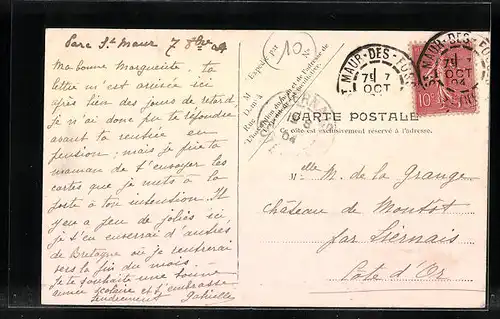 Parc St Maur 7 8bre 04
Ma bonne Marguerite, ta
lettre m'est arrivée ici
après bien des jours de retard
je n'ai donc pu te répondre
avant ta rentrée en
pension; mais je prie ta
maman de t'envoyer les
cartes que je mets à la
poste à ton intention. Il
y en a peu de jolies ici,
je t'en enverrai d'autres
de Bretagne où je rentrerai
vers la fin du mois.
Je te souhaite une bonne
année scolaire et t'embrasse
tendrement Gabrielle
10
ST MAUR-DES-FOSSÉS
7 OCT 04
10c
CARTE POSTALE
Ce côté est exclusivement réservé à l'adresse.
Melle M. de la Grange
Château de Montot
par Liernais
Côte d'Or